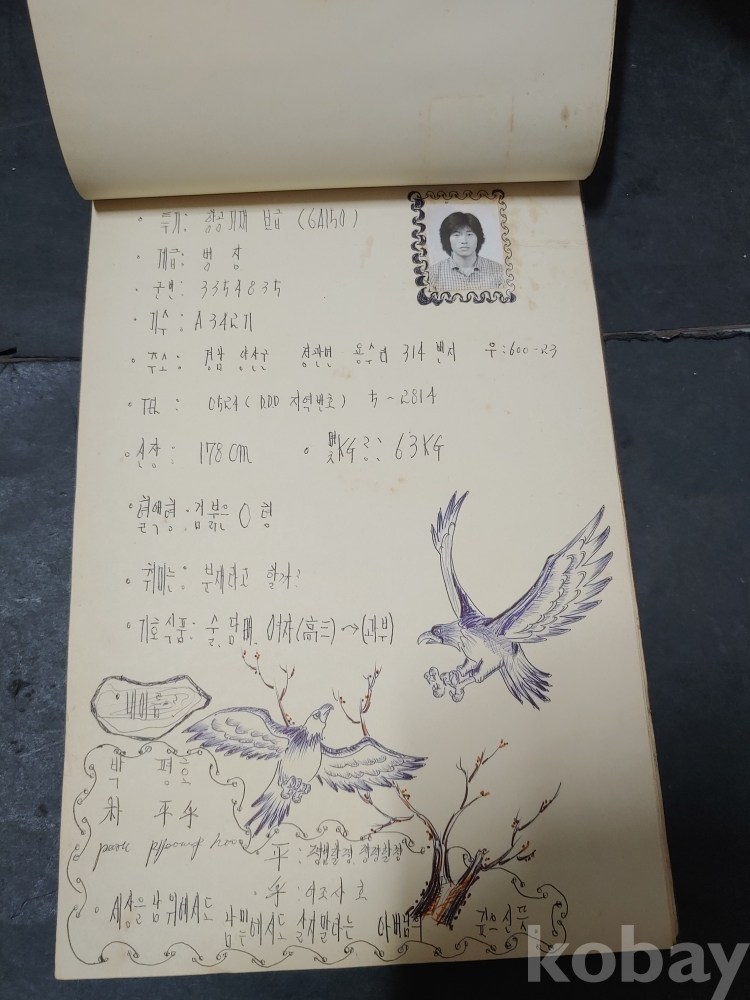 ◦ 특기: 항공기재 보급 (6A150)
◦ 계급: 병 장
◦ 군번: 3354835
◦ 기수: A342기
◦ 주소: 경남 양산군 정관면 용수리 314 번지 우:600-23
◦ TEL: 0524 (D.D.D 지역번호) 5-2814
◦ 신장: 178cm ◦ 몇KG중: 63KG
◦ 혈액형: 검붉은 O형
◦ 취미는: 분재라고 할까?
◦ 기호식품: 술, 담배, 여자(高三)→(과부)
◦ 내이름
박 평호
朴 平乎
park pyoung hoo
◦ 平:
◦ 乎: 어조사 호
◦ 세상을 남 위에서도 남 밑에서도 살지말라는 아버님의 깊은 뜻
kobay